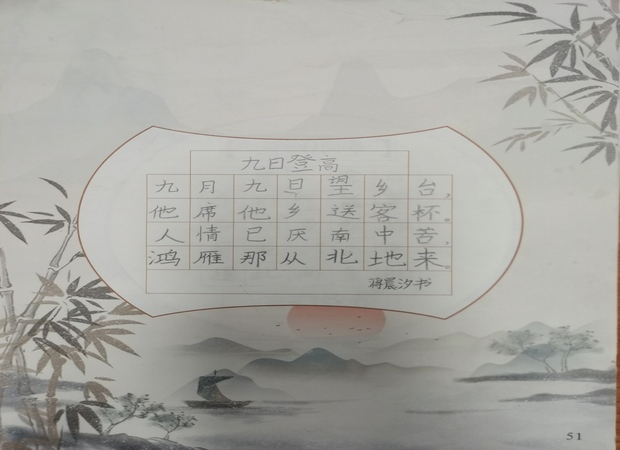 九日登高
九月九日望乡台，
他席他乡送客杯。
人情已厌南中苦，
鸿雁那从北地来。
蒋晨汐书
51